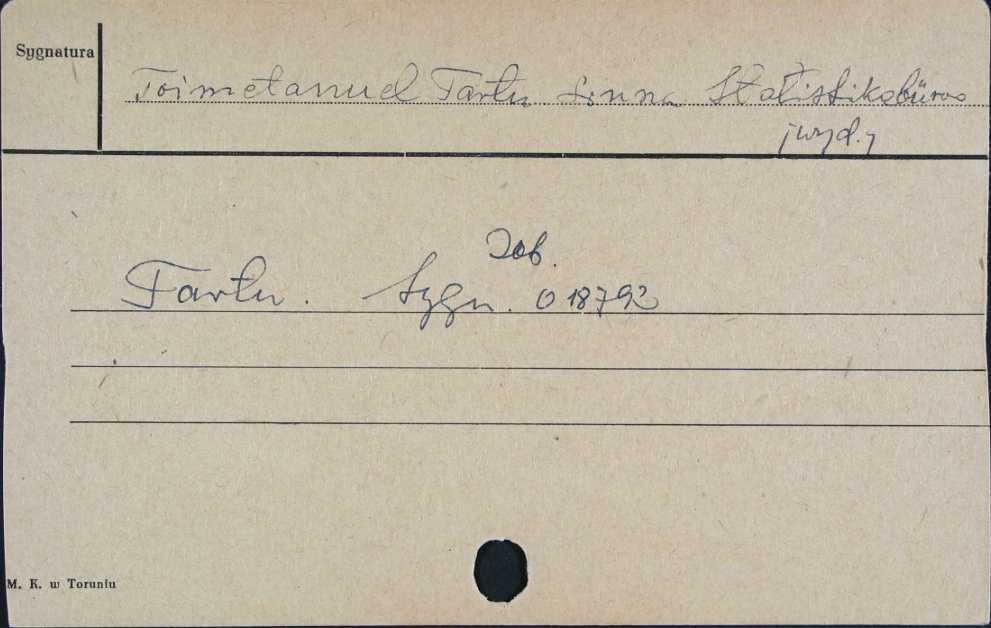 Sygnatura
Toimetanud Tartu Linna Statistikabüroo
[wyd.]
Tartu. Sygn. 018792
M. K. w Toruniu